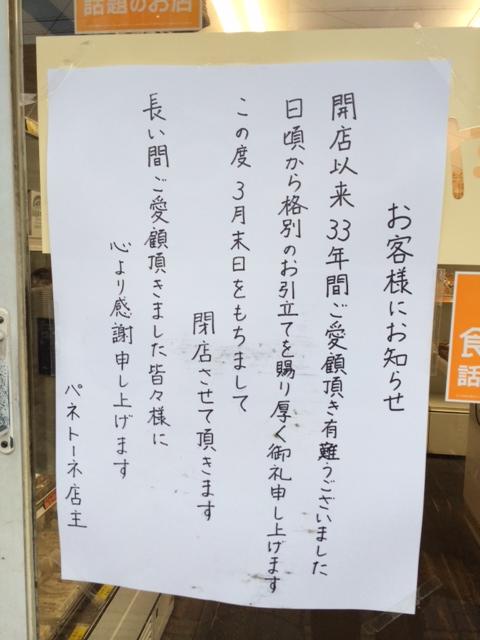 話題のお店
お客様にお知らせ
開店以来33年間ご愛顧頂き有難うございました
日頃から格別のお引立てを賜り厚く御礼申し上げます
この度3月末日をもちまして
閉店させて頂きます
長い間ご愛顧頂きました皆々様に
心より感謝申し上げます
パネトーネ店主
食
話